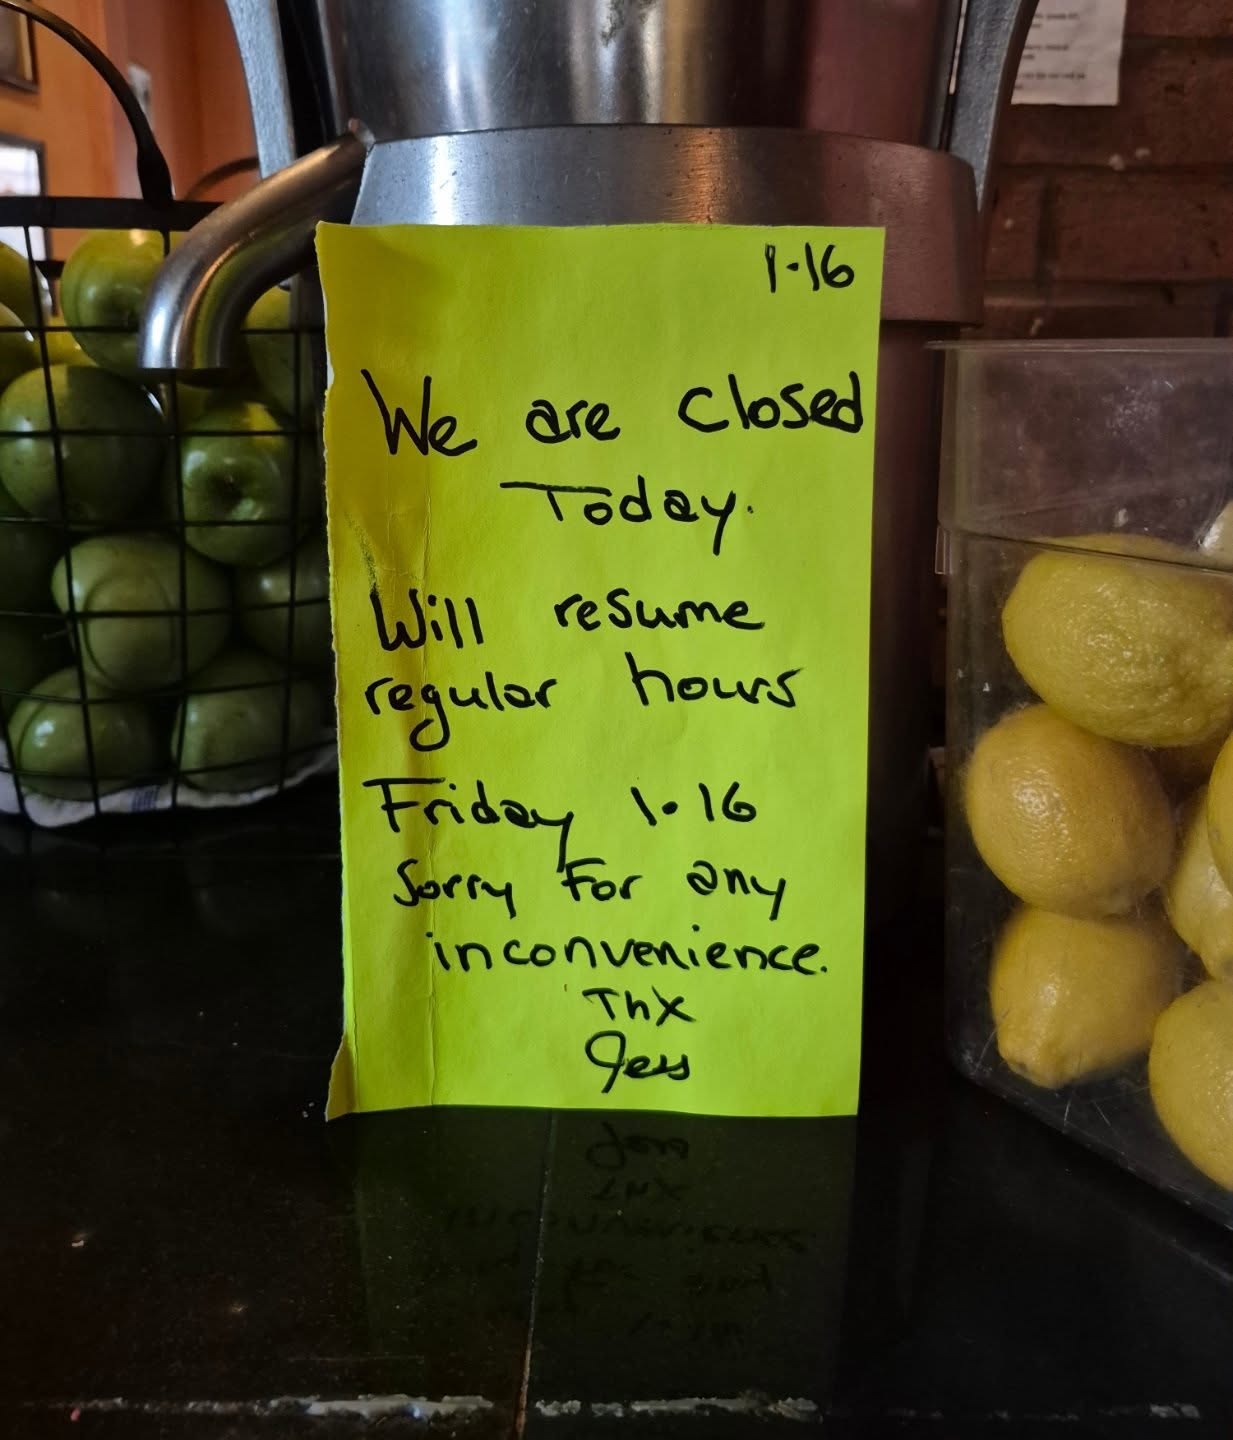 1·16
We are closed
Today.
Will resume
regular hours
Friday 1·16
Sorry for any
inconvenience.
Thx
Jess